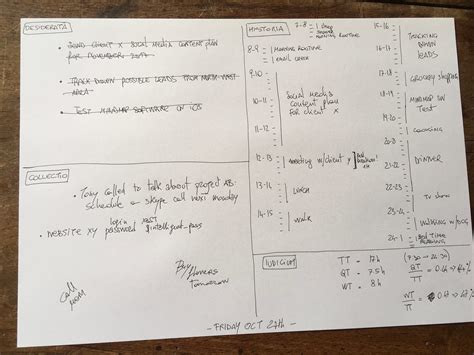 DESIDERATA
- SEND CLIENT X SOCIAL MEDIA CONTENT PLAN
FOR NOVEMBER 2017
- TRACK DOWN POSSIBLE LEADS FROM NORTH WEST
AREA
- TEST MINDMAP SOFTWARE ON iOS
COLLECTIO
• Tony called to talk about project AB:
schedule a skype call next monday
login
• WEBSITE XY password
Buy
tomorrow
call
MOM
HISTORIA
7-8
ROUTINE
8-9
MORNING ROUTINE
EMAIL CHECK
9.10
10-11
Social Media
content plan
for client x
11-12
12-13
meeting w/client y
13-14
LUNCH
14-15
WALK
15-16
16-17
TRACKING
DOWN
LEADS
17-18
GROCERY shopping
18-19
MINDMAP SW
TEST
19-20
COOKING
20-21
21-22
DINNER
22-23
TV show
23-24
WALKING w/DOG
24-1
BED TIME
READING
IUDICIUM
TT = 17h
QT = 7.5h
WT = 8h
QT
TT
WT
TT
- FRIDAY OCT 27th -